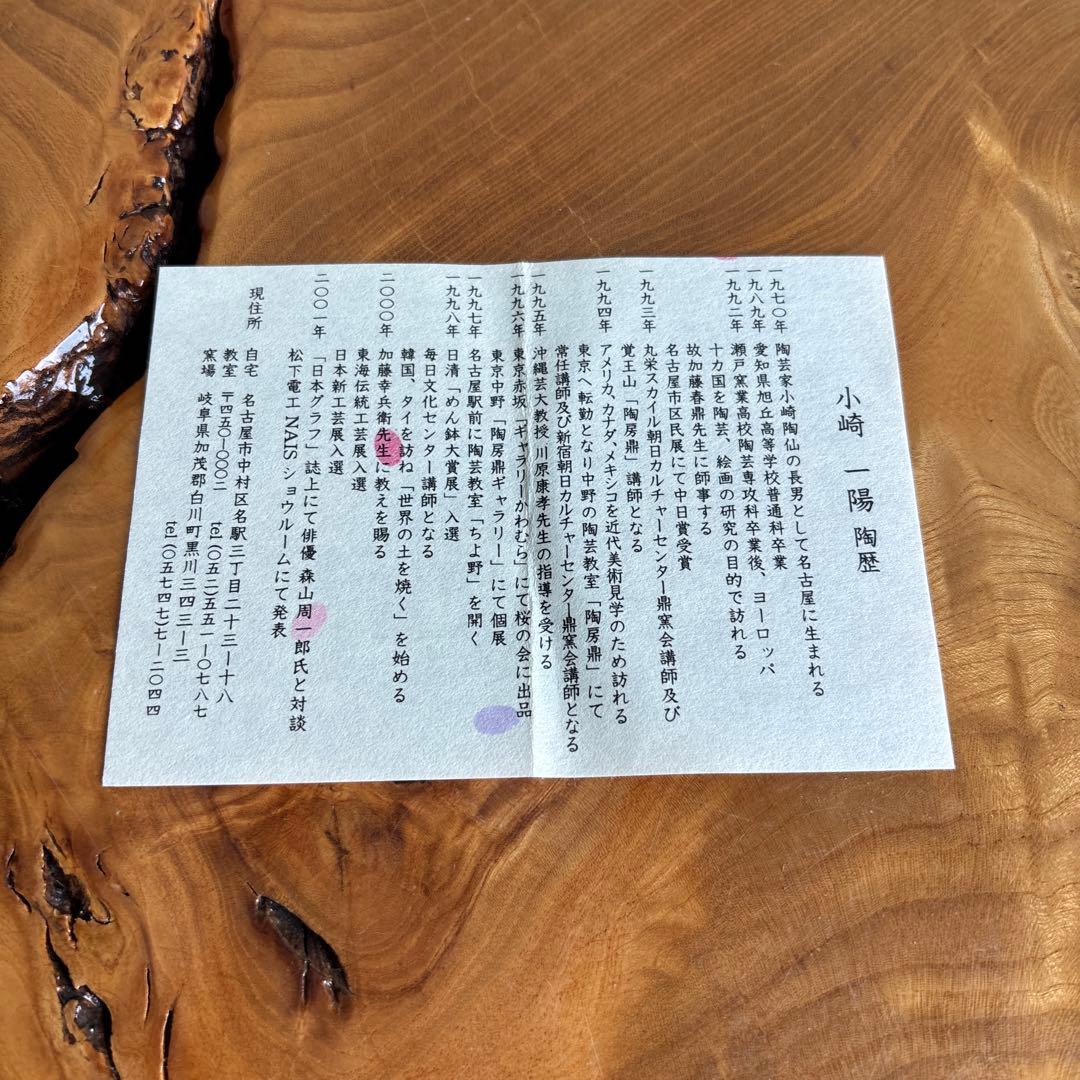 小崎 一陽 陶歴
一九七〇年 陶芸家小崎陶仙の長男として名古屋に生まれる
一九八九年 愛知県旭丘高等学校普通科卒業
一九九二年 瀬戸窯業高校陶芸専攻科卒業後、ヨーロッパ
十カ国を陶芸、絵画の研究の目的で訪れる
故加藤春鼎先生に師事する
名古屋市市区民展にて中日賞受賞
一九九三年 丸栄スカイル朝日カルチャーセンター鼎窯会講師及び
覚王山「陶房鼎」講師となる
一九九四年 アメリカ、カナダ、メキシコを近代美術見学のため訪れる
東京へ転勤となり中野の陶芸教室「陶房鼎」にて
常任講師及び新宿朝日カルチャーセンター鼎窯会講師となる
一九九五年 沖縄芸大教授 川原康孝先生の指導を受ける
一九九六年 東京赤坂「ギャラリーかわむら」にて桜の会に出品
東京中野「陶房鼎ギャラリー」にて個展
一九九七年 名古屋駅前に陶芸教室「ちよ野」を開く
一九九八年 日清「めん鉢大賞展」入選
毎日文化センター講師となる
韓国、タイを訪ね「世界の土を焼く」を始める
二〇〇〇年 加藤幸兵衛先生に教えを賜る
東海伝統工芸展入選
日本新工芸展入選
二〇〇一年 「日本グラフ」誌上にて俳優 森山周一郎氏と対談
松下電工 NAIS ショウルームにて発表
現住所 自宅 名古屋市中村区名駅三丁目二十三ー十八
教室 〒四五〇ー〇〇〇二
tel(〇五二)五五一ー〇七八七
窯場 岐阜県加茂郡白川町黒川三四三ー三
tel(〇五七四七)七ー二〇四四